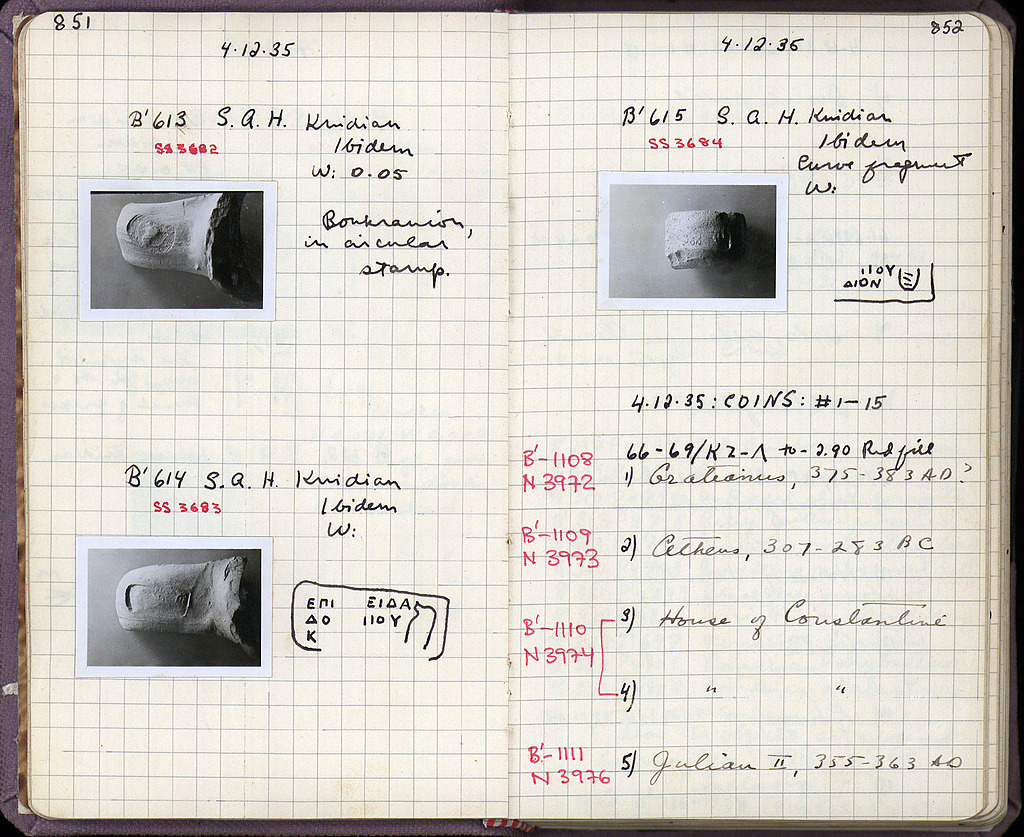 851
4·12·35
B' 613 S. A. H. Knidian
SS 3682
Ibidem
W: 0.05
Boukranion,
in circular
stamp.
B' 614 S. A. H. Knidian
SS 3683
Ibidem
W:
ΕΠΙ ΕΙΔΑ
ΔΟ ΙΙΟΥ
Κ
852
4·12·35
B' 615 S. A. H. Knidian
SS 3684
Ibidem
Curve fragment
W:
ΙΙΟΥ
ΔΙΟΝ
4·12·35: COINS: #1-15
B'-1108
N 3972
66-69/ΚΖ-Λ to -2.90 Red fill
1) Gratianus, 375-383 AD?
B'-1109
N 3973
2) Athens, 307-283 BC
B'-1110
N 3974
3) House of Constantine
4) " "
B'-1111
N 3976
5) Julian II, 355-363 AD